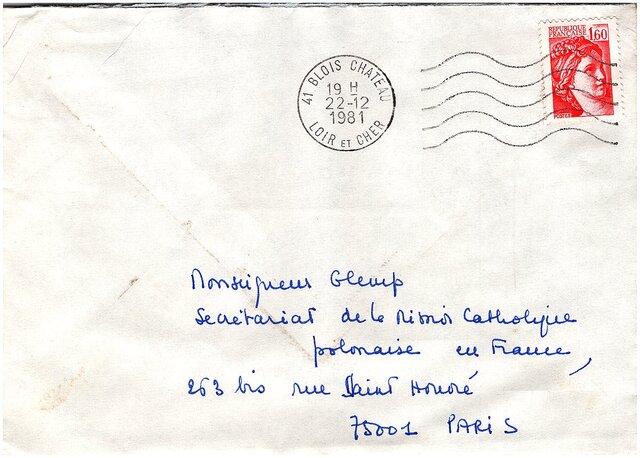 REPUBLIQUE
FRANÇAISE 1,60
POSTES
41 BLOIS CHATEAU
19 H
22-12
1981
LOIR ET CHER
Monseigneur Glemp
Secrétariat de la Mission Catholique
polonaise en France,
263 bis rue Saint Honoré
75001 PARIS